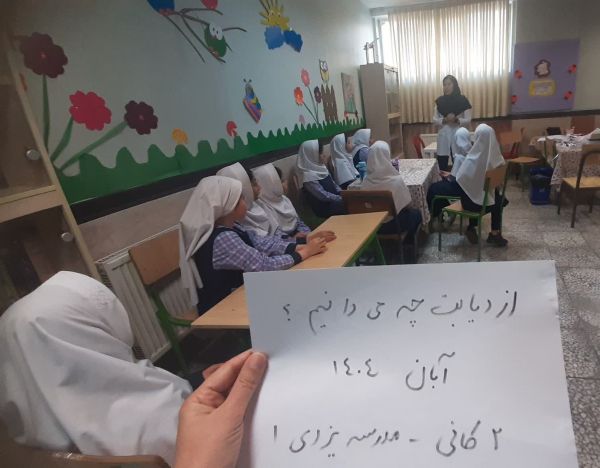 از دیابت چه می دانیم ؟
آبان ۱۴۰۴
۲ کانی - مدرسه یزدی ۱